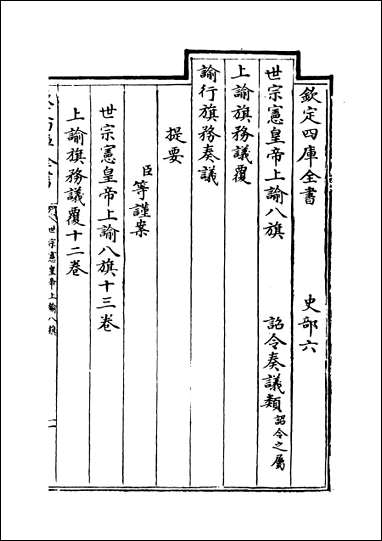 欽定四庫全書 史部六
世宗憲皇帝上諭八旗 詔令奏議類詔令之屬
上諭旗務議覆
諭行旗務奏議
提要
臣等謹案
世宗憲皇帝上諭八旗十三卷
上諭旗務議覆十二卷
世宗憲皇帝上諭八旗